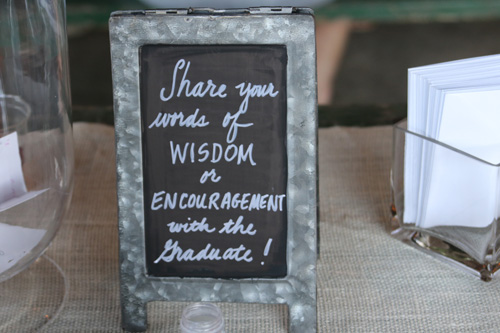 Share your
words of
WISDOM
or
ENCOURAGEMENT
with the
Graduate!